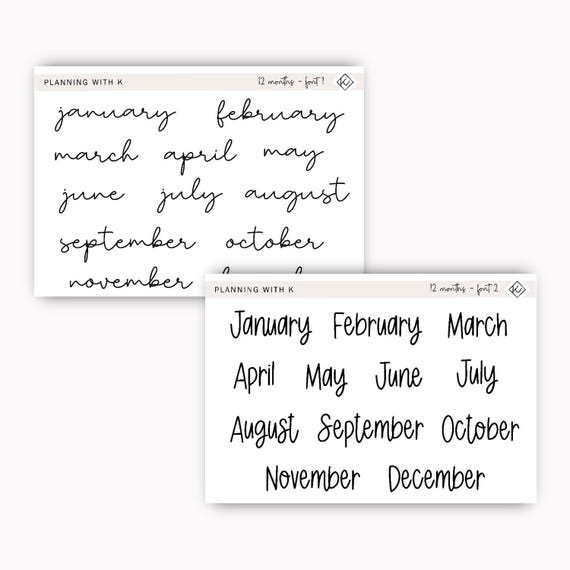 PLANNING WITH K 12 months - font 1
january february
march april may
june july august
september october
november
PLANNING WITH K 12 months - font 2
January February March
April May June July
August September October
November December